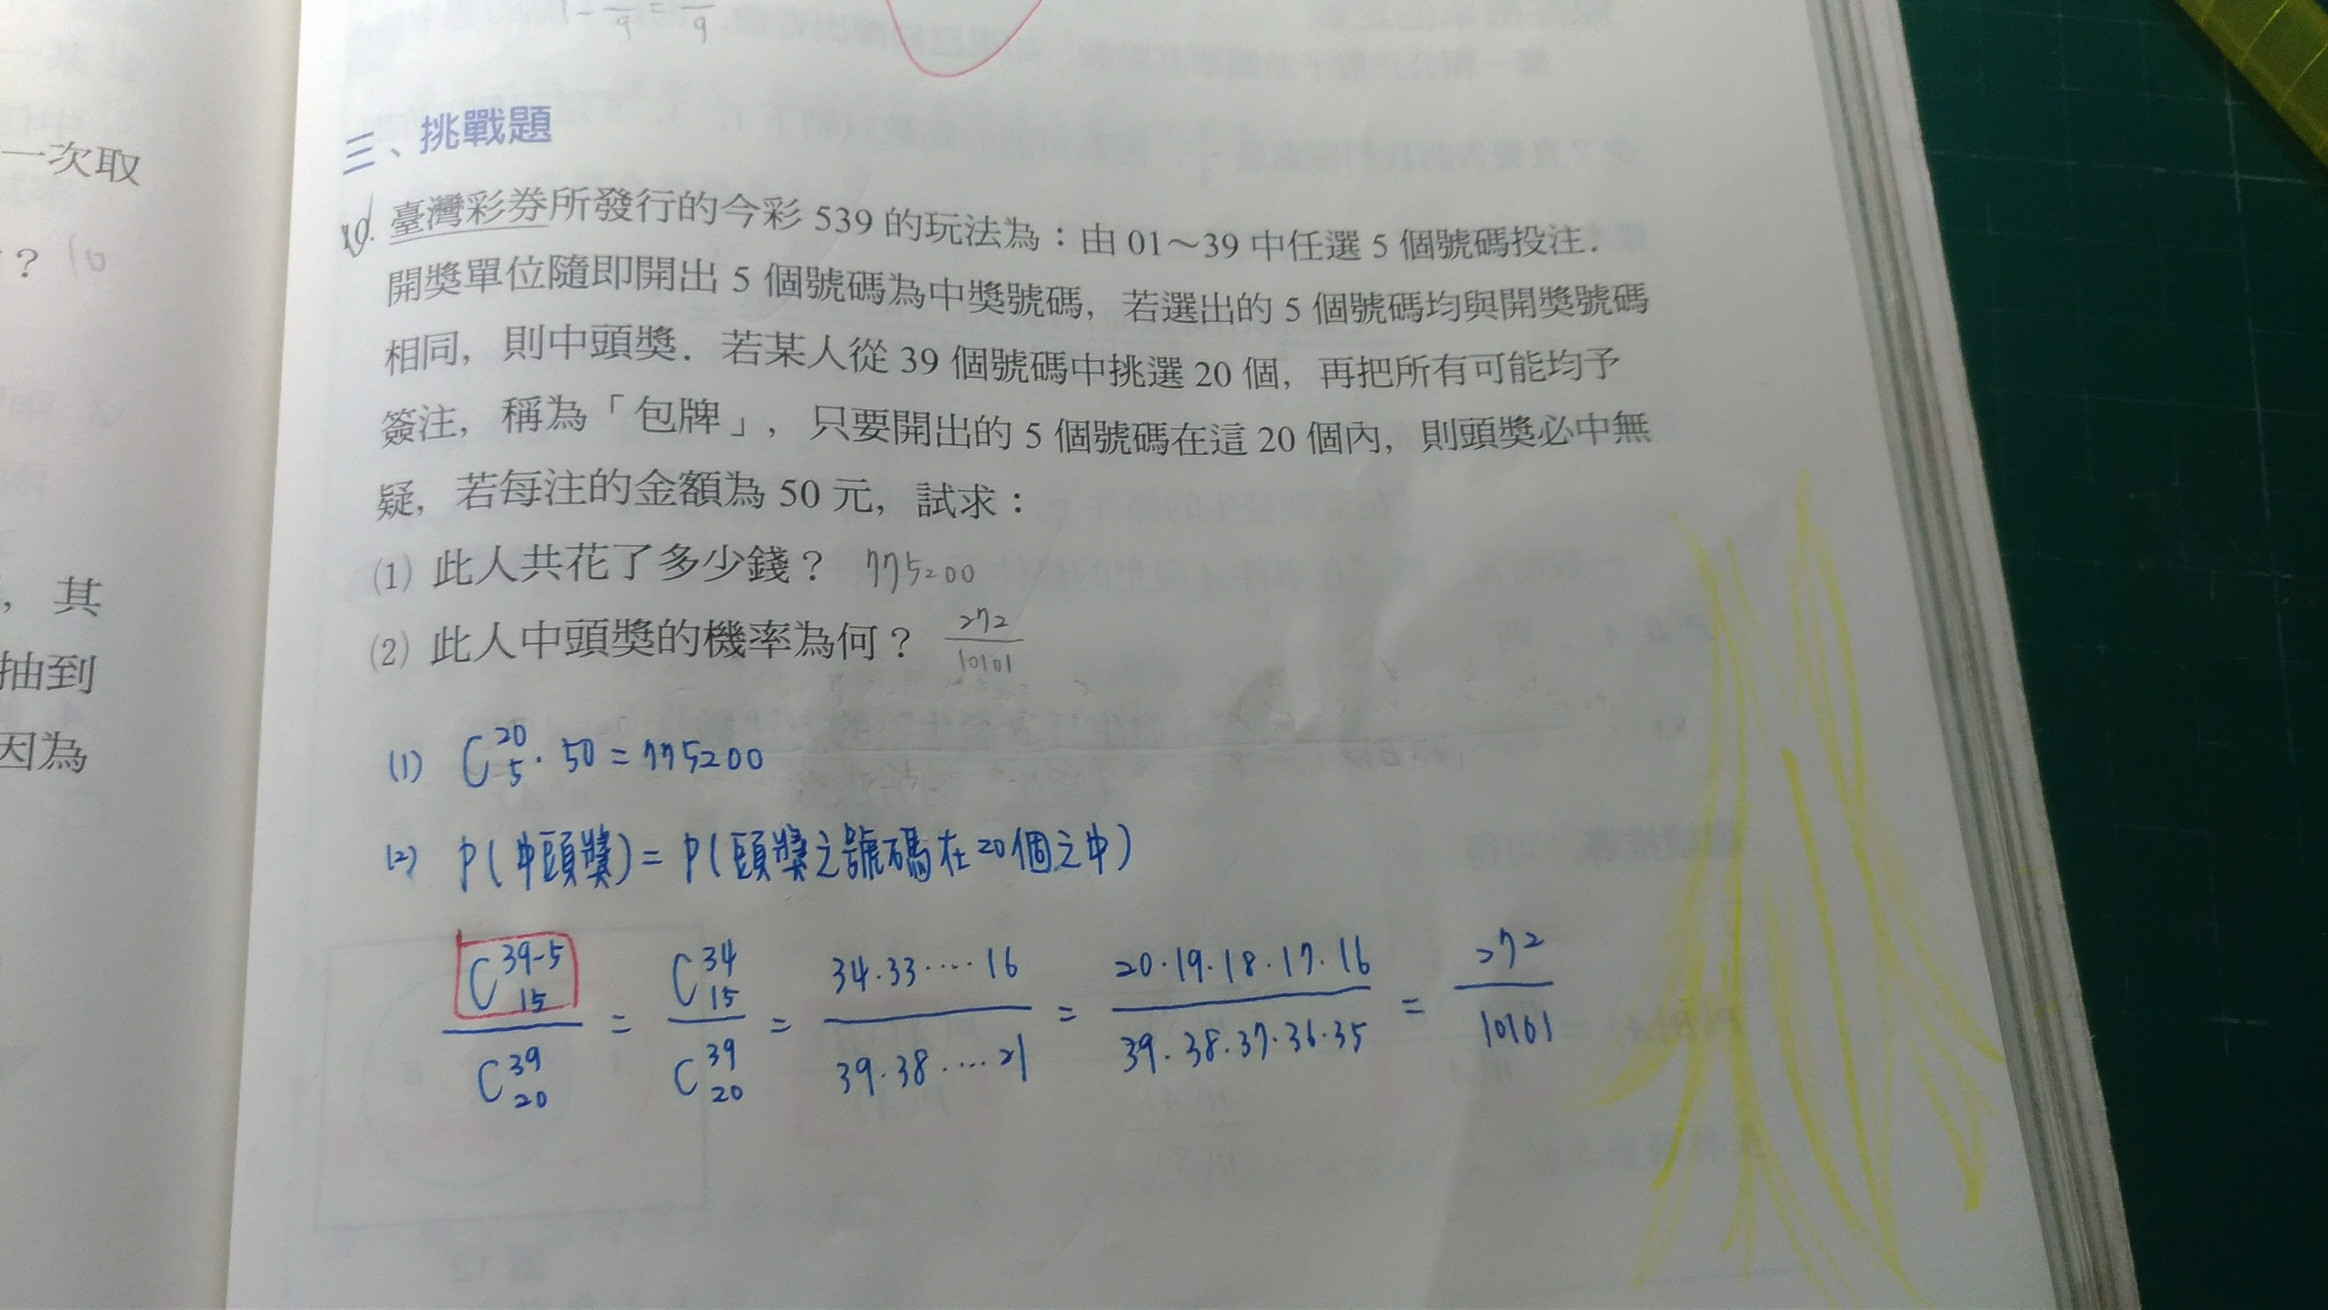 1 - /9 = /9
三、挑戰題
一次取
10. 臺灣彩券所發行的今彩 539 的玩法為：由 01～39 中任選 5 個號碼投注．
? 
開獎單位隨即開出 5 個號碼為中獎號碼，若選出的 5 個號碼均與開獎號碼
相同，則中頭獎．若某人從 39 個號碼中挑選 20 個，再把所有可能均予
簽注，稱為「包牌」，只要開出的 5 個號碼在這 20 個內，則頭獎必中無
疑，若每注的金額為 50 元，試求：
，其
(1) 此人共花了多少錢？ 775200
抽到
(2) 此人中頭獎的機率為何？ 272/10101
因為
(1) C^20_5 · 50 = 775200
(2) P(中頭獎) = P(頭獎之號碼在20個之中)
C^39-5_15 / C^39_20 = C^34_15 / C^39_20 = 34·33····16 / 39·38····21 = 20·19·18·17·16 / 39·38·37·36·35 = 272/10101